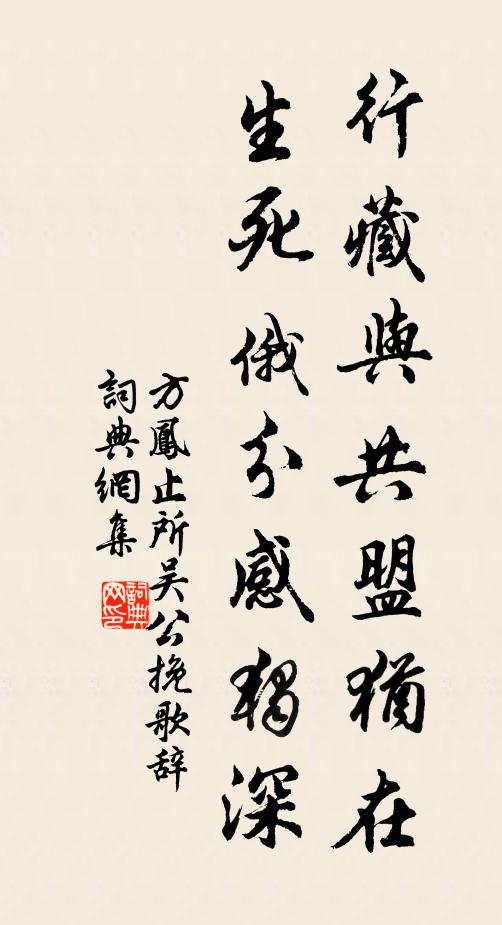 行藏與共盟猶在
生死俄分感獨深
方鳳止所吴公挽歌辞
詞典網集
詞典网印